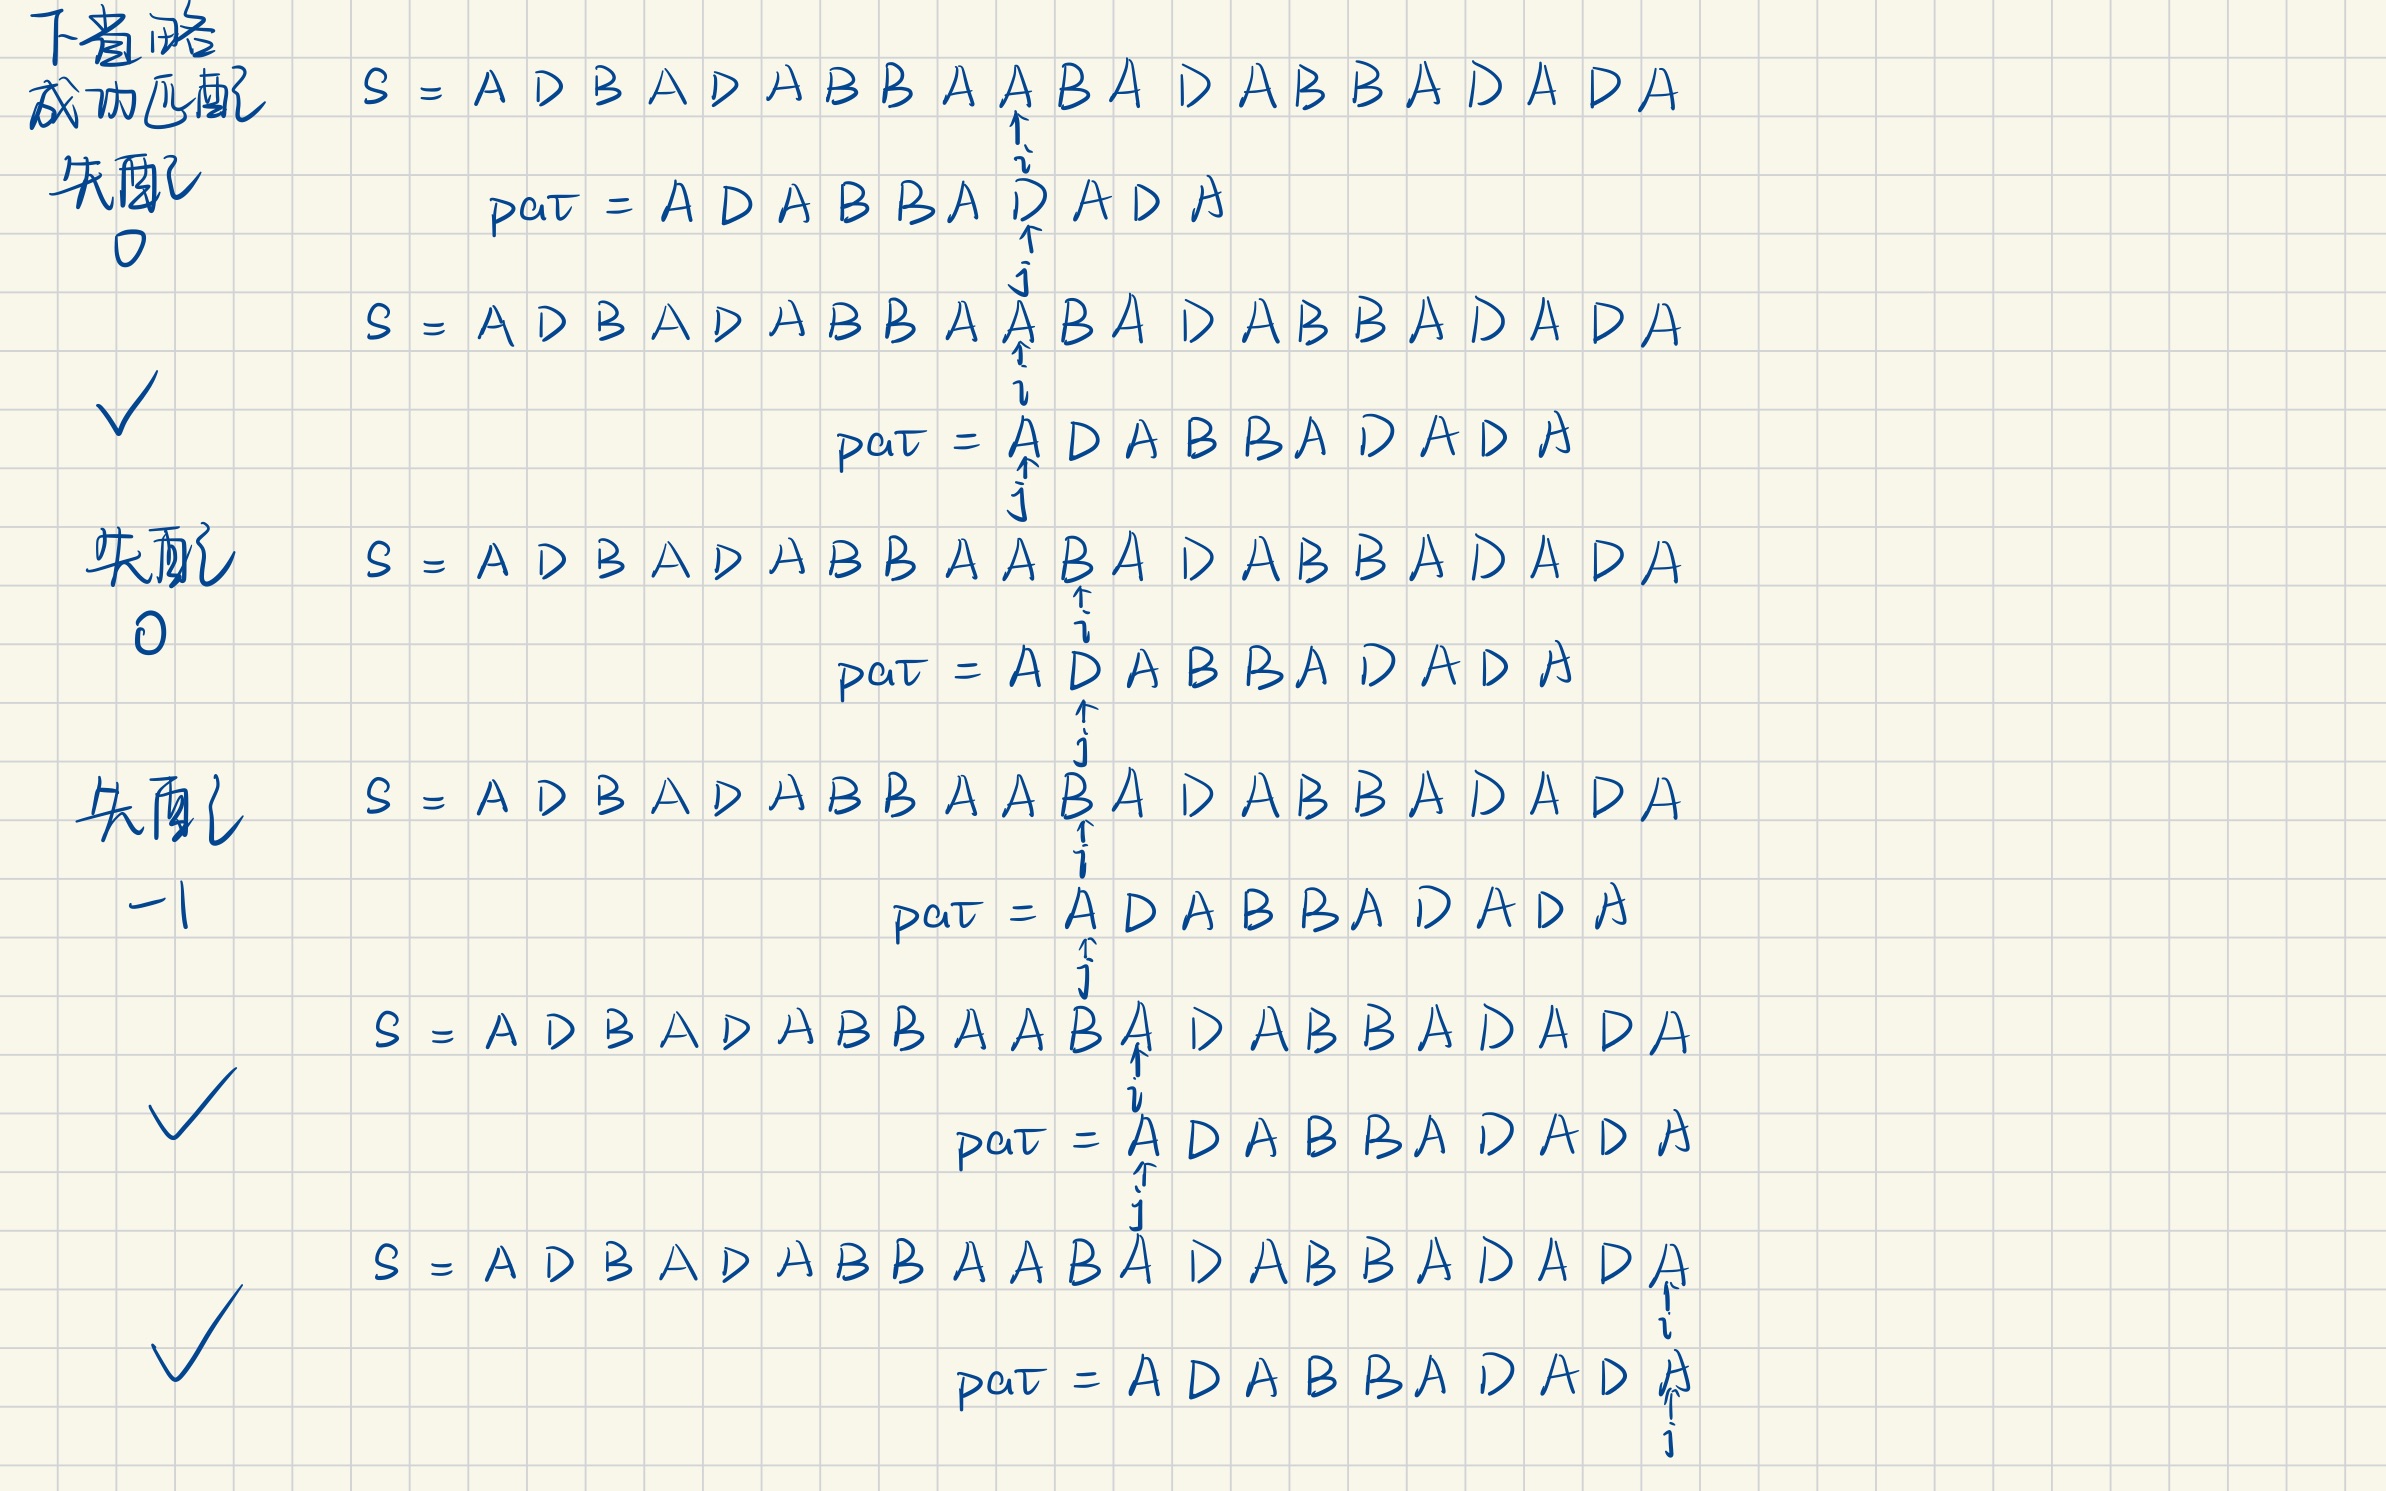 下省略
成功匹配
S = A D B A D A B B A A B A D A B B A D A D A
↑
i
失配
pat = A D A B B A D A D A
0
↑
j
S = A D B A D A B B A A B A D A B B A D A D A
↑
i
✓
pat = A D A B B A D A D A
↑
j
失配
S = A D B A D A B B A A B A D A B B A D A D A
↑
i
0
pat = A D A B B A D A D A
↑
j
失配
S = A D B A D A B B A A B A D A B B A D A D A
↑
i
-1
pat = A D A B B A D A D A
↑
j
S = A D B A D A B B A A B A D A B B A D A D A
↑
i
✓
pat = A D A B B A D A D A
↑
j
S = A D B A D A B B A A B A D A B B A D A D A
↑
i
✓
pat = A D A B B A D A D A
↑
j